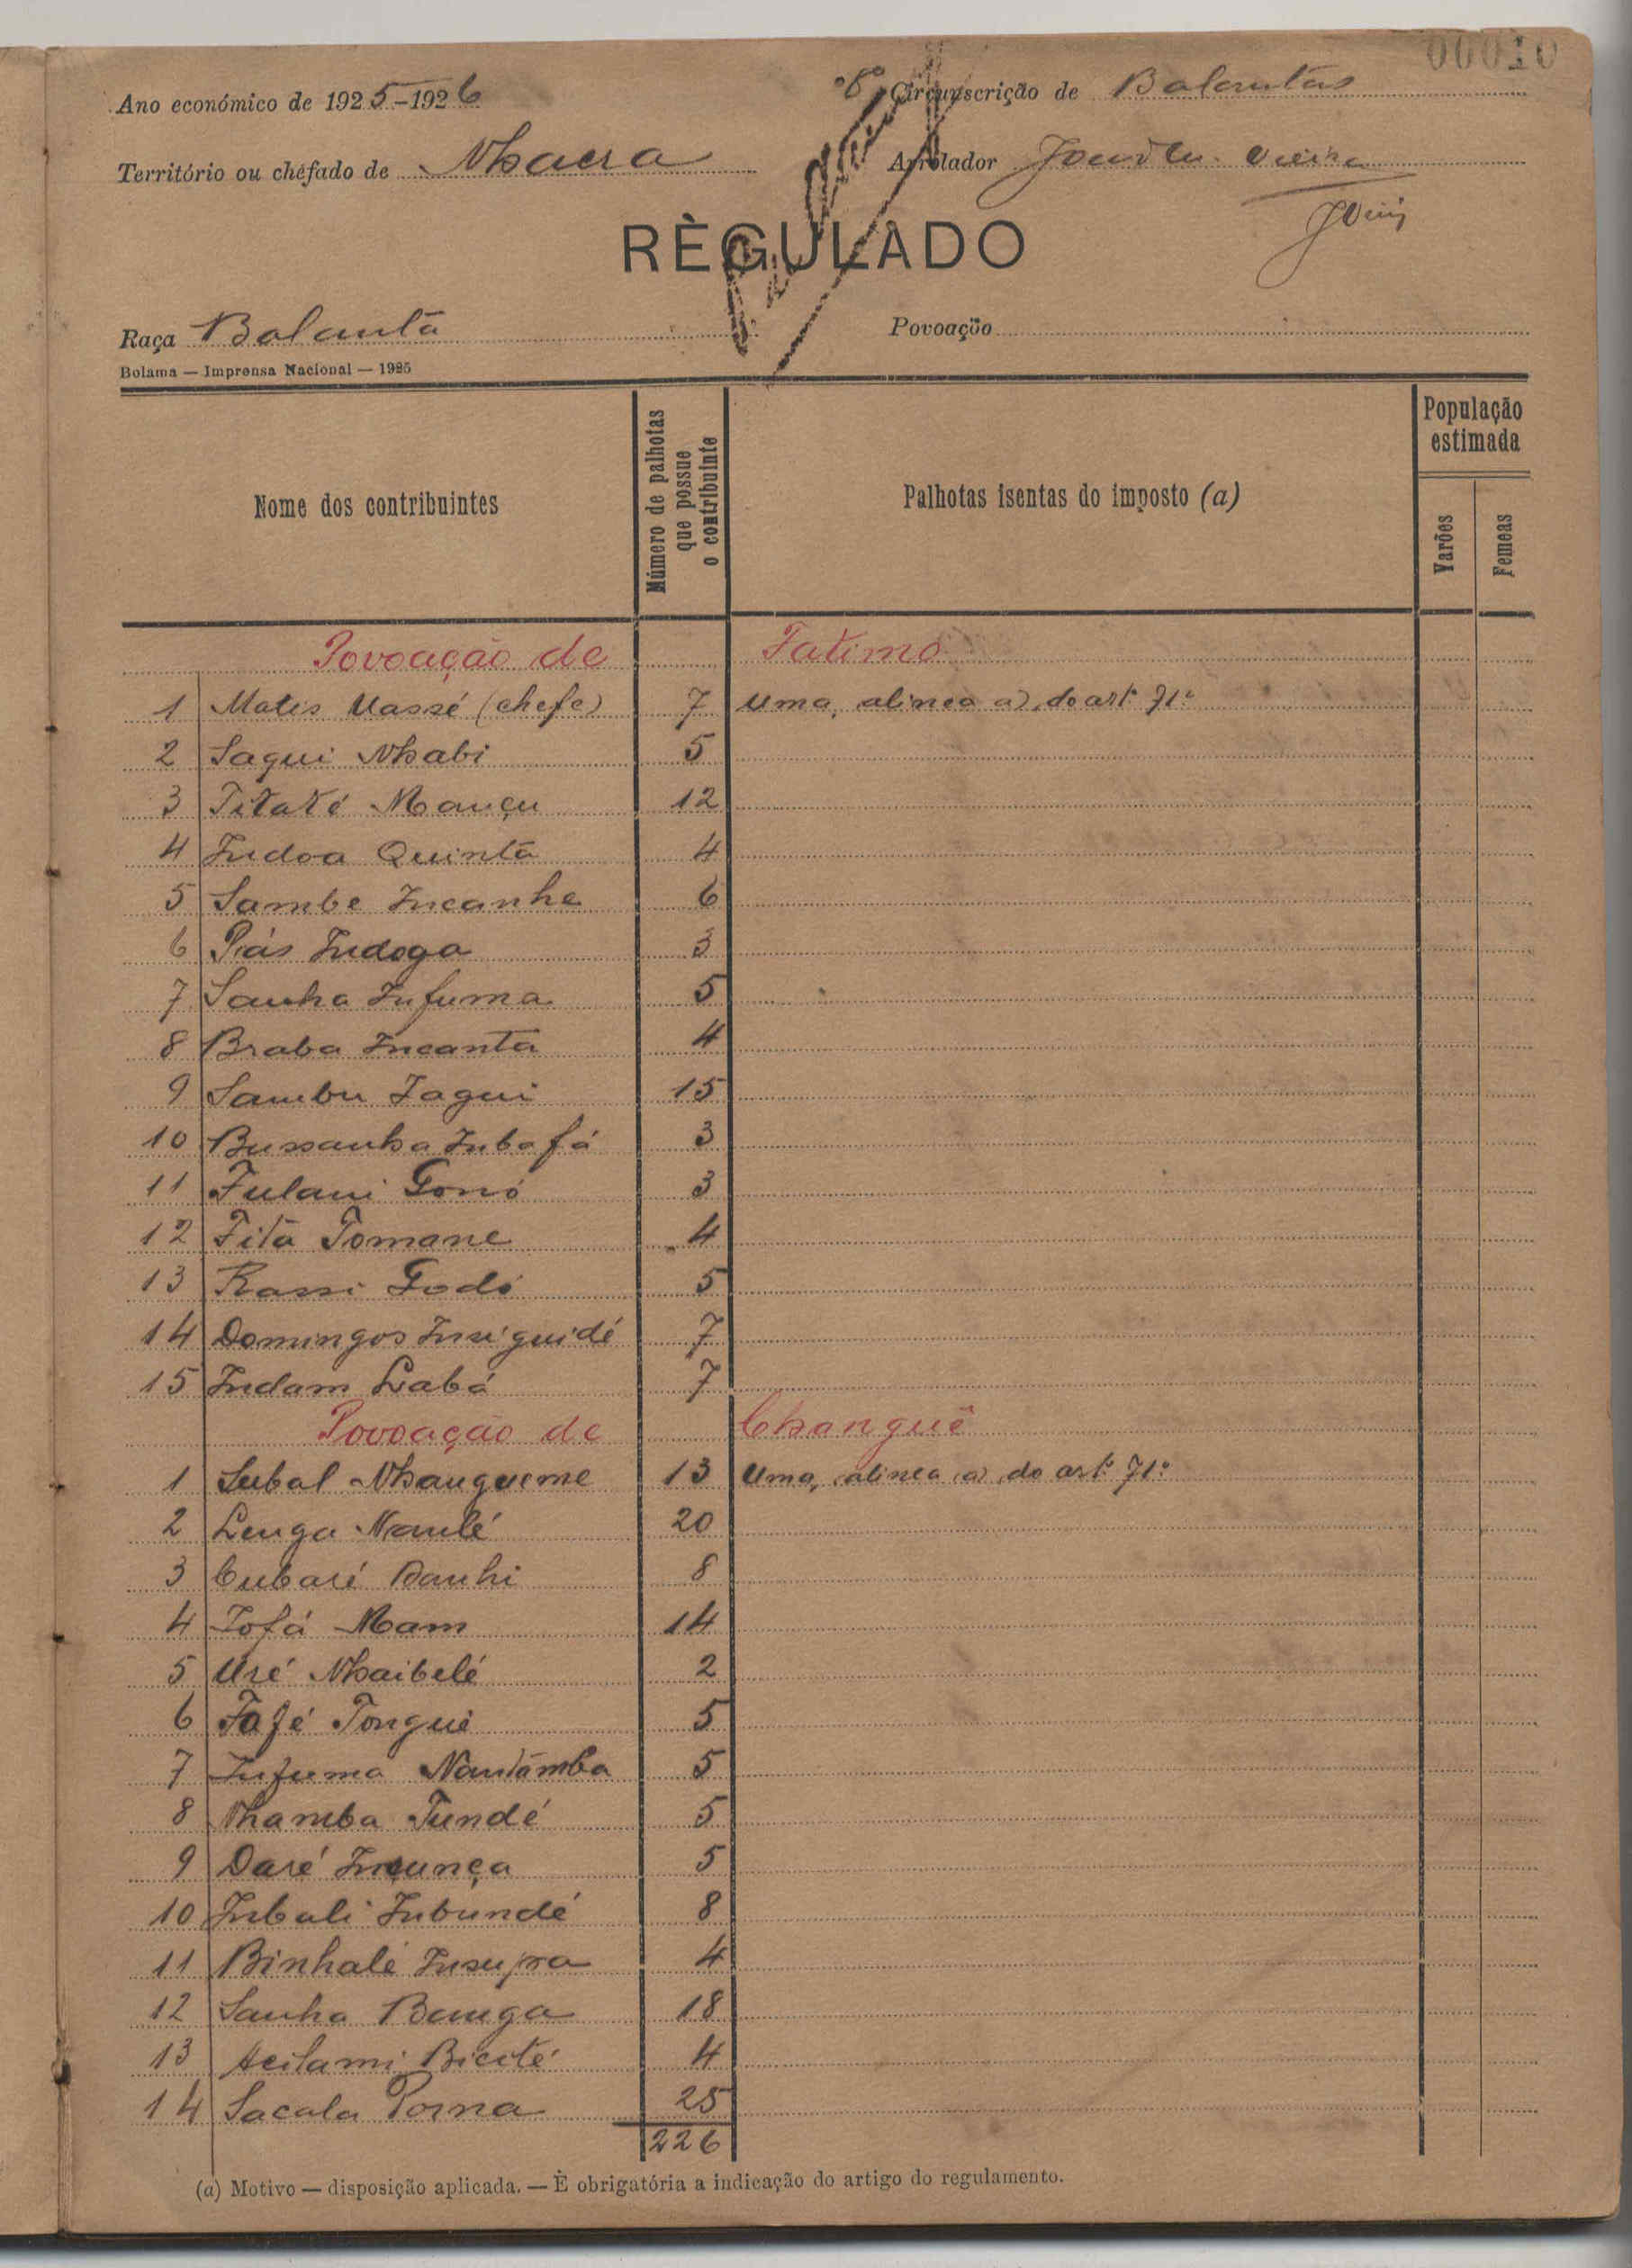 00010
Ano económico de 1925-1926
Circunscrição de Balantas
Território ou chefado de Nhacra
Arrolador Vieira
RÈGULADO
Raça Balanta
Povoação
Bolama — Imprensa Nacional — 1925
Nome dos contribuintes
Número de palhotas que possue o contribuinte
Palhotas isentas do imposto (a)
População estimada
Varões
Femeas
Povoação de Fatimo
1 Matis Uassé (chefe) 7 Uma, alinea a) do artº 71º
2 Sagui Nhabi 5
3 Titaté Mançu 12
4 Indoa Quintã 4
5 Sambe Incanha 6
6 Piás Indoga 3
7 Sanha Infuma 5
8 Braba Incanta 4
9 Sambu Iagui 15
10 Bussanha Inbafá 3
11 Fulani Gonó 3
12 Fitã Tomane 4
13 Kassi Godó 5
14 Domingos Insiguidé 7
15 Indam Labá 7
Povoação de Changuê
1 Subal Nhangueme 13 Uma, alinea a) do artº 71º
2 Lenga Nanlé 20
3 Cubaré Danhi 8
4 Iofá Mam 14
5 Uré Nhaibelé 2
6 Fafé Tongué 5
7 Infuma Nantãmba 5
8 Nhamba Tundé 5
9 Daré Incunça 5
10 Inbali Inbundé 8
11 Binhalé Insupra 4
12 Sanha Banga 18
13 Bicité 4
14 Sacala Porna 25
226
(a) Motivo — disposição aplicada. — È obrigatória a indicação do artigo do regulamento.